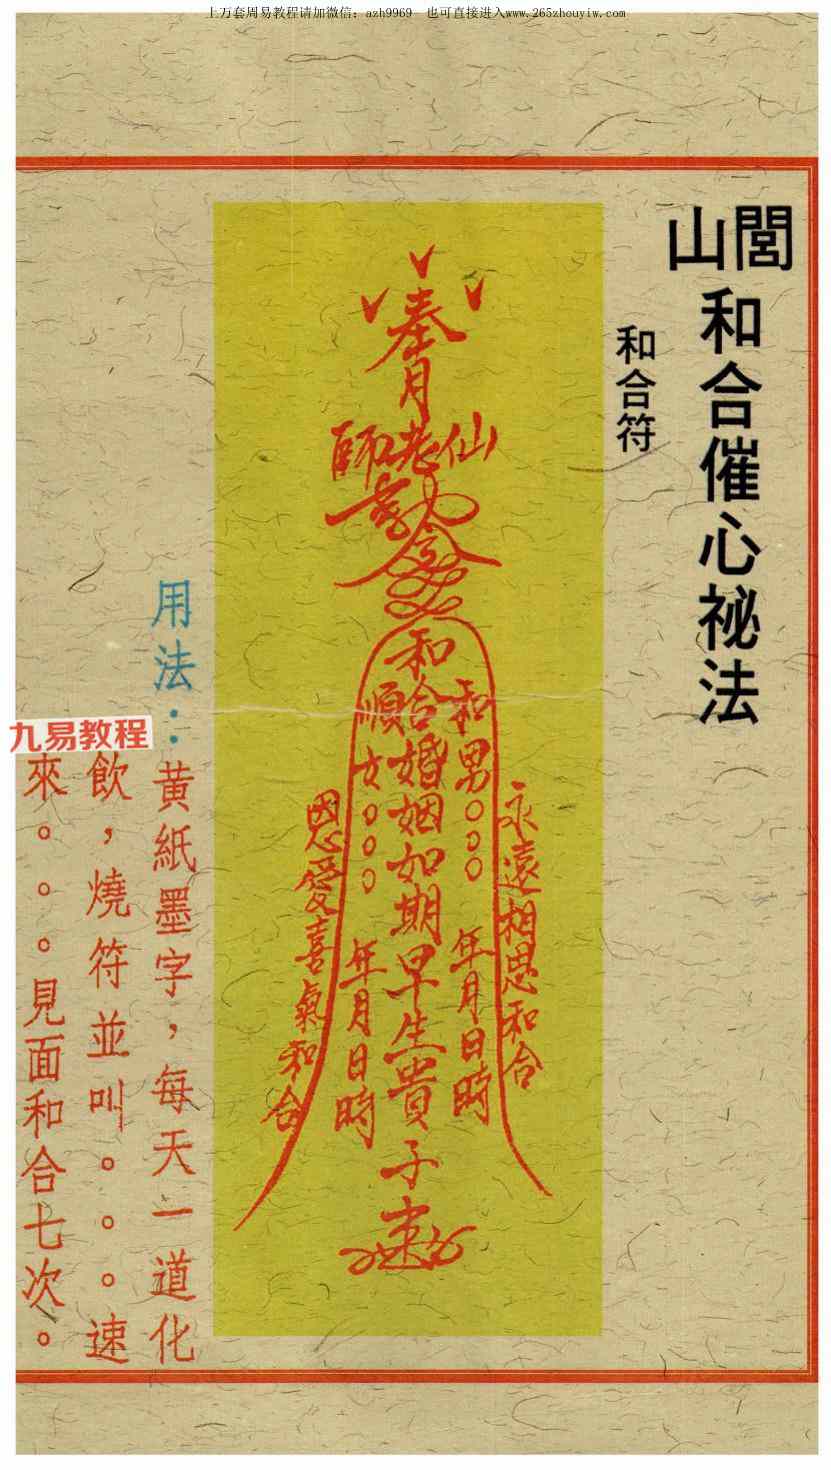 上万套周易教程请加微信：azh9969　也可直接进入www.265zhouyiw.com
閭山
和合催心祕法
和合符
奉月
仙老師
和合婚姻如期早生貴子
和男○○○　年月日時
順女○○○　年月日時
永遠相思和合
恩愛喜氣和合
用法：黄紙墨字，每天一道化
飲，燒符並叫。。。速
來。。。見面和合七次。
九易教程